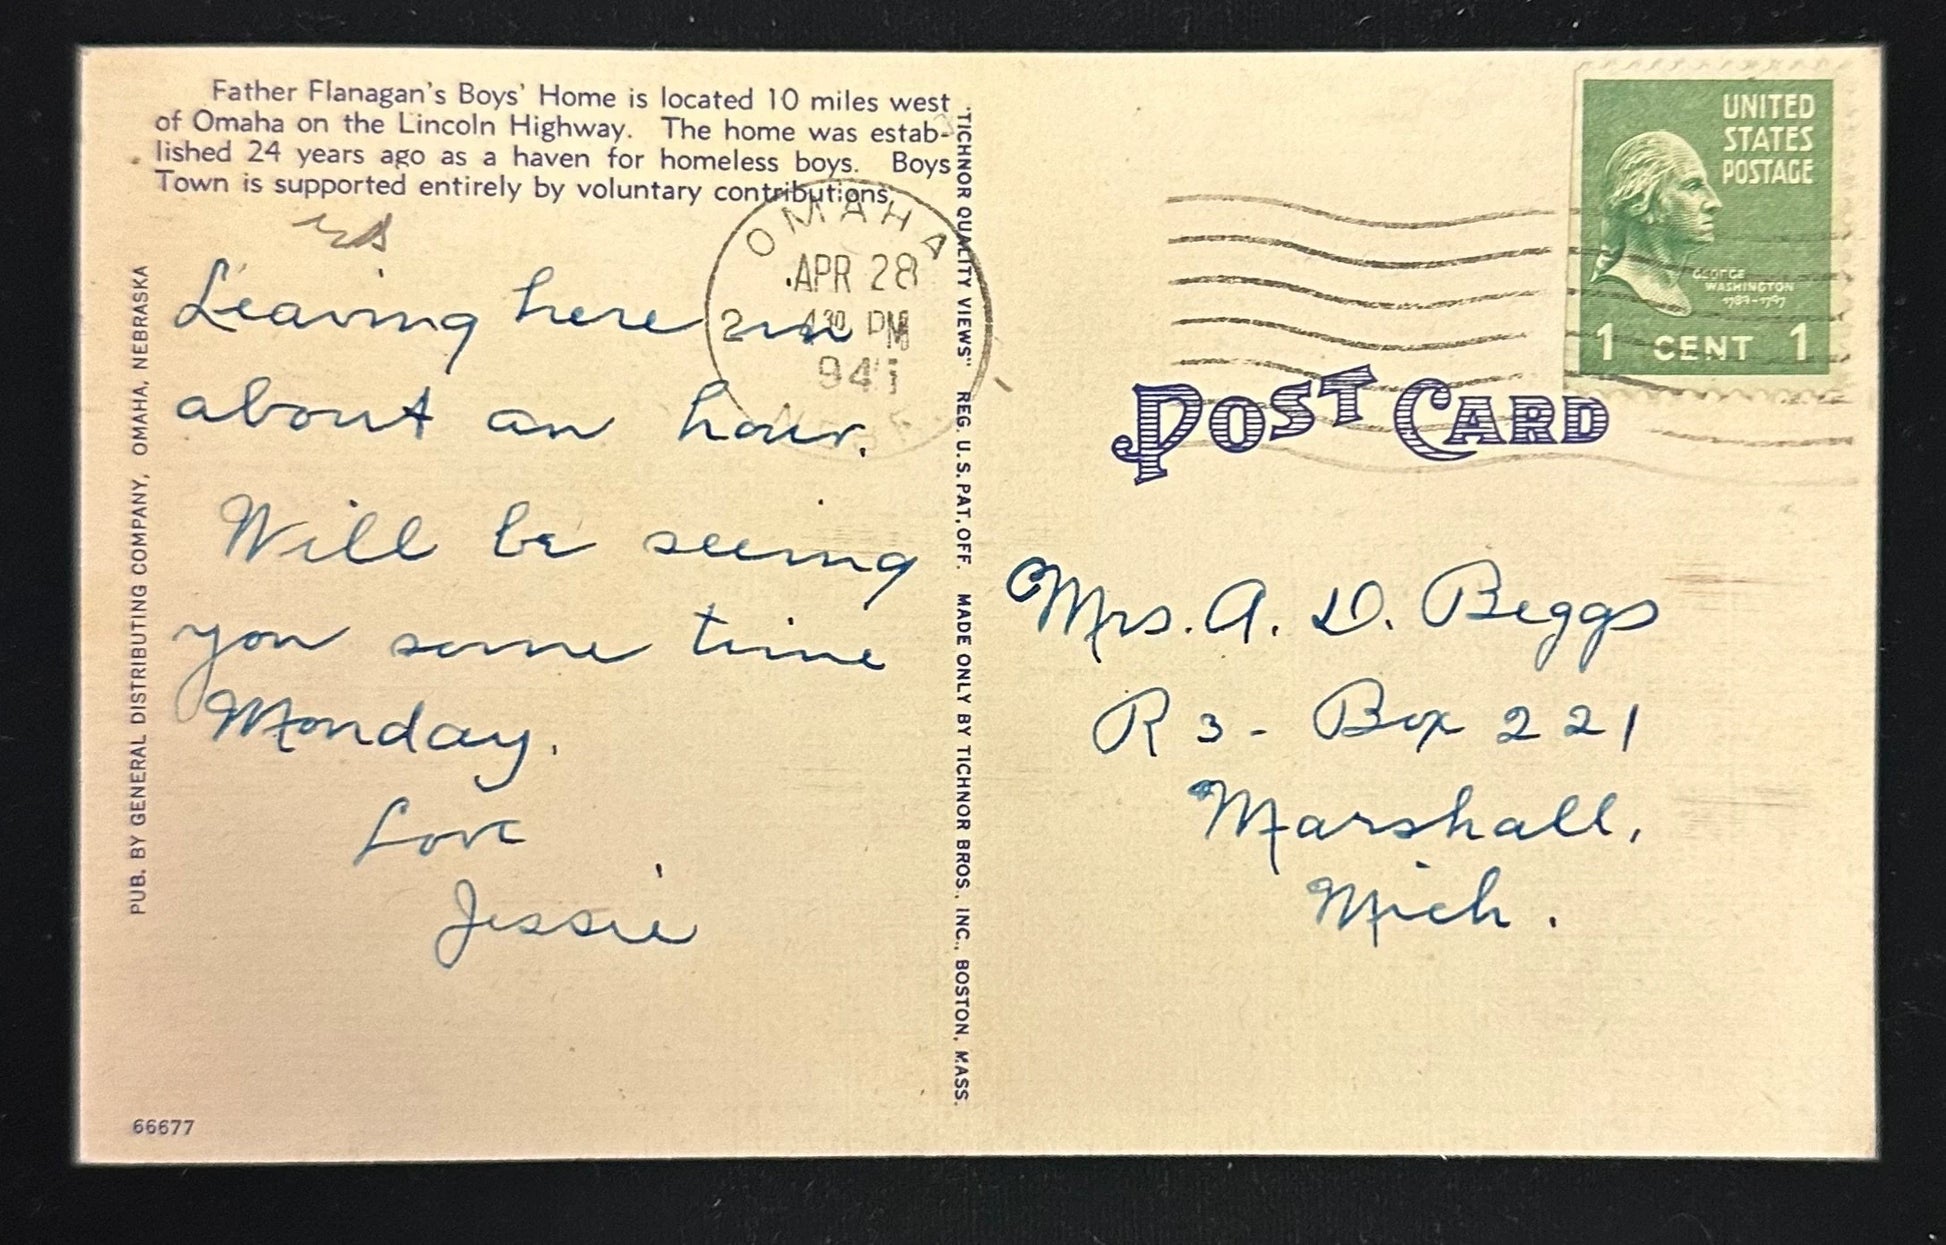 Father Flanagan's Boys' Home is located 10 miles west
of Omaha on the Lincoln Highway. The home was estab-
lished 24 years ago as a haven for homeless boys. Boys
Town is supported entirely by voluntary contributions.
Leaving here in
about an hour.
Will be seeing
you some time
Monday.
Love
Jessie
66677
PUB. BY GENERAL DISTRIBUTING COMPANY, OMAHA, NEBRASKA
OMAHA
APR 28
2 430 PM
NEBR.
"TICHNOR QUALITY VIEWS" REG. U. S. PAT. OFF. MADE ONLY BY TICHNOR BROS., INC., BOSTON, MASS.
UNITED
STATES
POSTAGE
GEORGE
WASHINGTON
1789-1797
1 CENT 1
POST CARD
Mrs. A. D. Beggs
R 3 - Box 221
Marshall,
Mich.